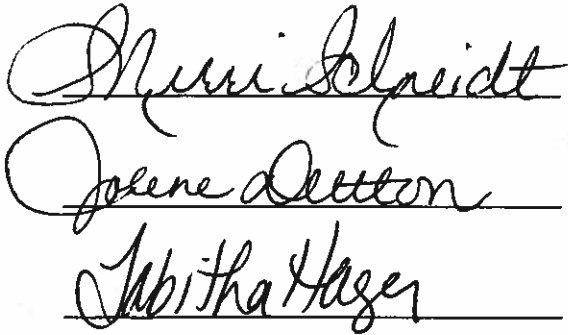 Sherri Schneidt
Jolene Dutton
Tabitha Hager